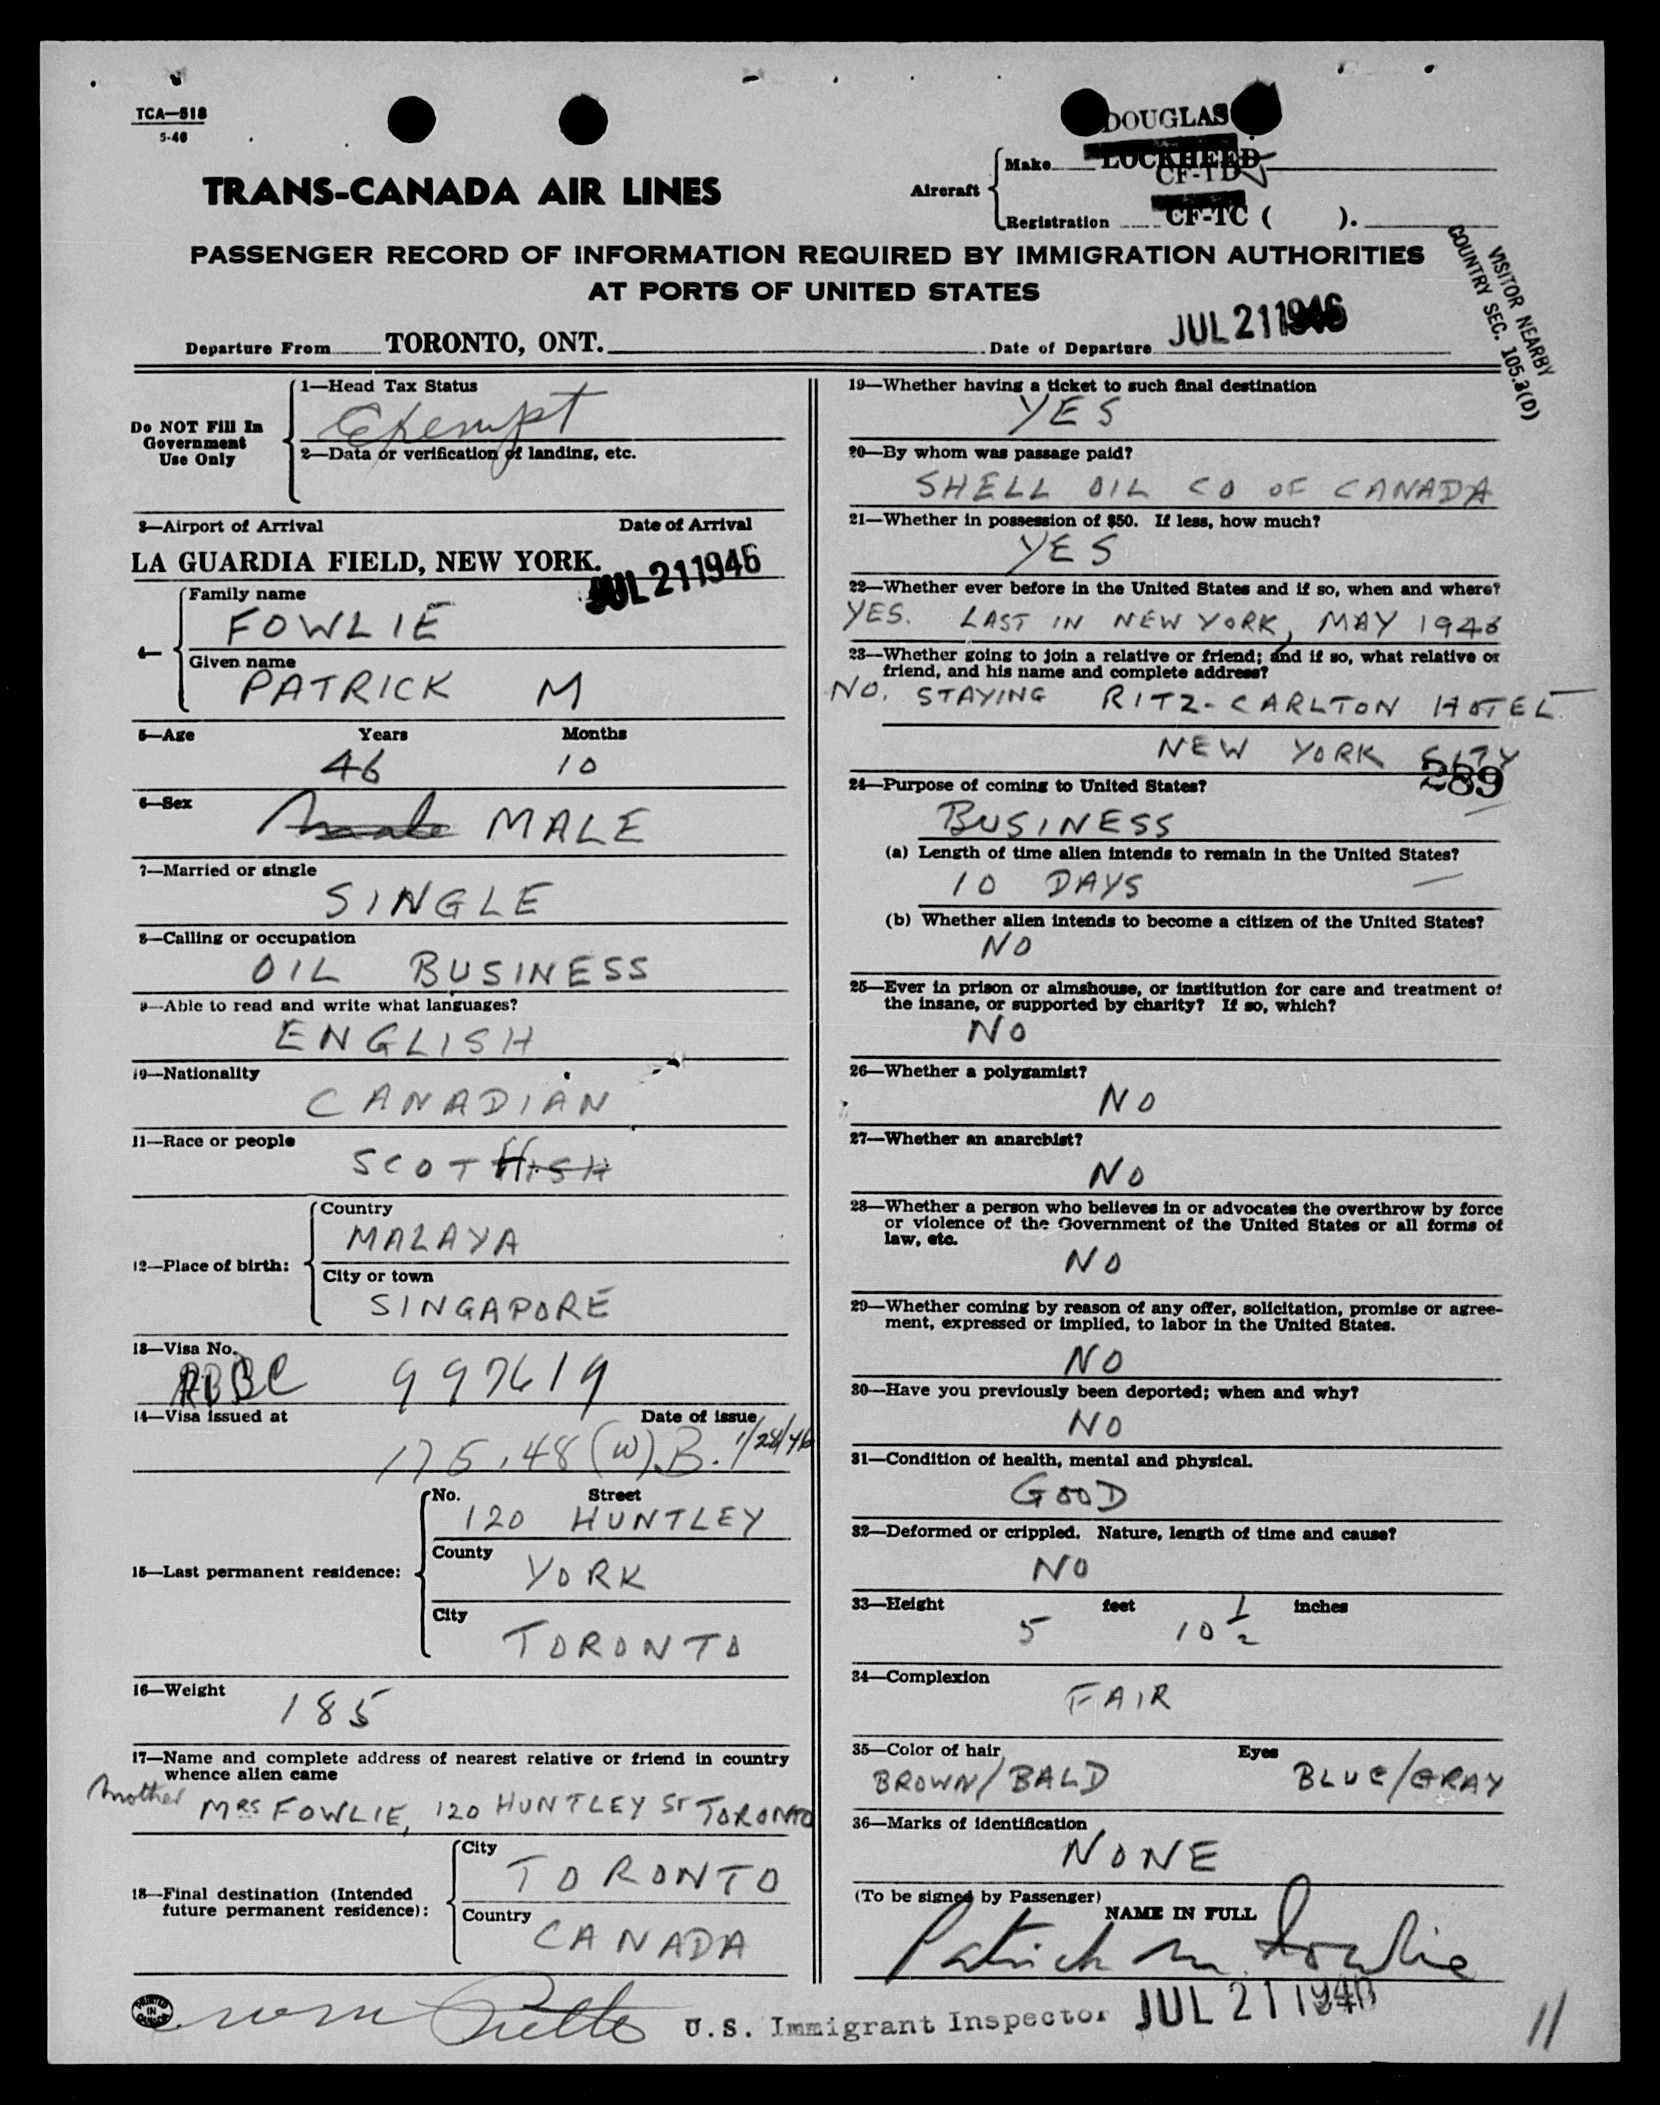 TCA—518
5-46
TRANS-CANADA AIR LINES
DOUGLAS
Aircraft
Make LOCKHEED
CF-TD
Registration CF-TC ( ).
PASSENGER RECORD OF INFORMATION REQUIRED BY IMMIGRATION AUTHORITIES
AT PORTS OF UNITED STATES
VISITOR NEARBY
COUNTRY SEC. 105.3(D)
Departure From TORONTO, ONT. Date of Departure JUL 21 1946
Do NOT Fill In
Government
Use Only
1—Head Tax Status
Exempt
2—Data or verification of landing, etc.
3—Airport of Arrival Date of Arrival
LA GUARDIA FIELD, NEW YORK. JUL 21 1946
4—
Family name
FOWLIE
Given name
PATRICK M
5—Age Years Months
46 10
6—Sex
Male MALE
7—Married or single
SINGLE
8—Calling or occupation
OIL BUSINESS
9—Able to read and write what languages?
ENGLISH
10—Nationality
CANADIAN
11—Race or people
SCOTTISH
12—Place of birth:
Country
MALAYA
City or town
SINGAPORE
13—Visa No.
RBBC 997619
14—Visa issued at Date of issue
175.48 (W).B. 1/28/46
15—Last permanent residence:
No. Street
120 HUNTLEY
County
YORK
City
TORONTO
16—Weight
185
17—Name and complete address of nearest relative or friend in country
whence alien came
Mother MRS FOWLIE, 120 HUNTLEY ST TORONTO
18—Final destination (Intended
future permanent residence):
City
TORONTO
Country
CANADA
19—Whether having a ticket to such final destination
YES
20—By whom was passage paid?
SHELL OIL CO OF CANADA
21—Whether in possession of $50. If less, how much?
YES
22—Whether ever before in the United States and if so, when and where?
YES. LAST IN NEW YORK, MAY 1946
23—Whether going to join a relative or friend; and if so, what relative or
friend, and his name and complete address?
NO. STAYING RITZ-CARLTON HOTEL
NEW YORK CITY
289
24—Purpose of coming to United States?
BUSINESS
(a) Length of time alien intends to remain in the United States?
10 DAYS
(b) Whether alien intends to become a citizen of the United States?
NO
25—Ever in prison or almshouse, or institution for care and treatment of
the insane, or supported by charity? If so, which?
NO
26—Whether a polygamist?
NO
27—Whether an anarchist?
NO
28—Whether a person who believes in or advocates the overthrow by force
or violence of the Government of the United States or all forms of
law, etc.
NO
29—Whether coming by reason of any offer, solicitation, promise or agree-
ment, expressed or implied, to labor in the United States.
NO
30—Have you previously been deported; when and why?
NO
31—Condition of health, mental and physical.
GOOD
32—Deformed or crippled. Nature, length of time and cause?
NO
33—Height feet inches
5 10 1/2
34—Complexion
FAIR
35—Color of hair Eyes
BROWN/BALD BLUE/GRAY
36—Marks of identification
NONE
(To be signed by Passenger)
NAME IN FULL
Patrick M. Fowlie
PRINTED
IN
CANADA
U.S. Immigrant Inspector JUL 21 1946
11